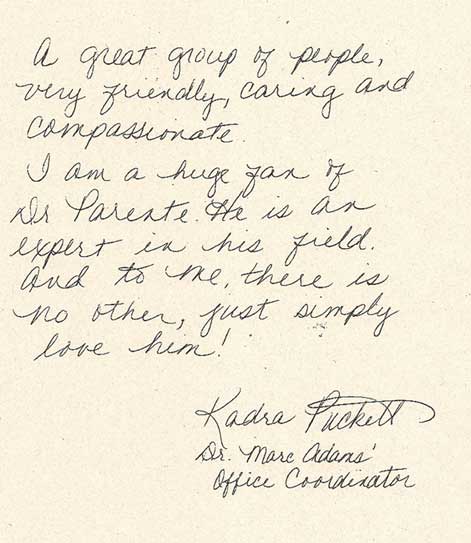 A great group of people,
very friendly, caring and
compassionate.
I am a huge fan of
Dr Parente. He is an
expert in his field.
And to me, there is
no other, just simply
love him!
Kadra Puckett
Dr. Marc Adams'
Office Coordinator